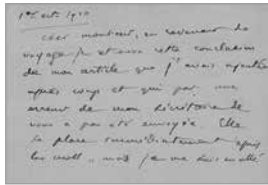 1er oct. 1910
cher monsieur, en revenant de
voyage je retrouve cette conclusion
de mon article que j'avais ajoutée
après coup et qui par une
erreur de mon secrétaire ne
vous a pas été envoyée. Elle
se place immédiatement après
les mots